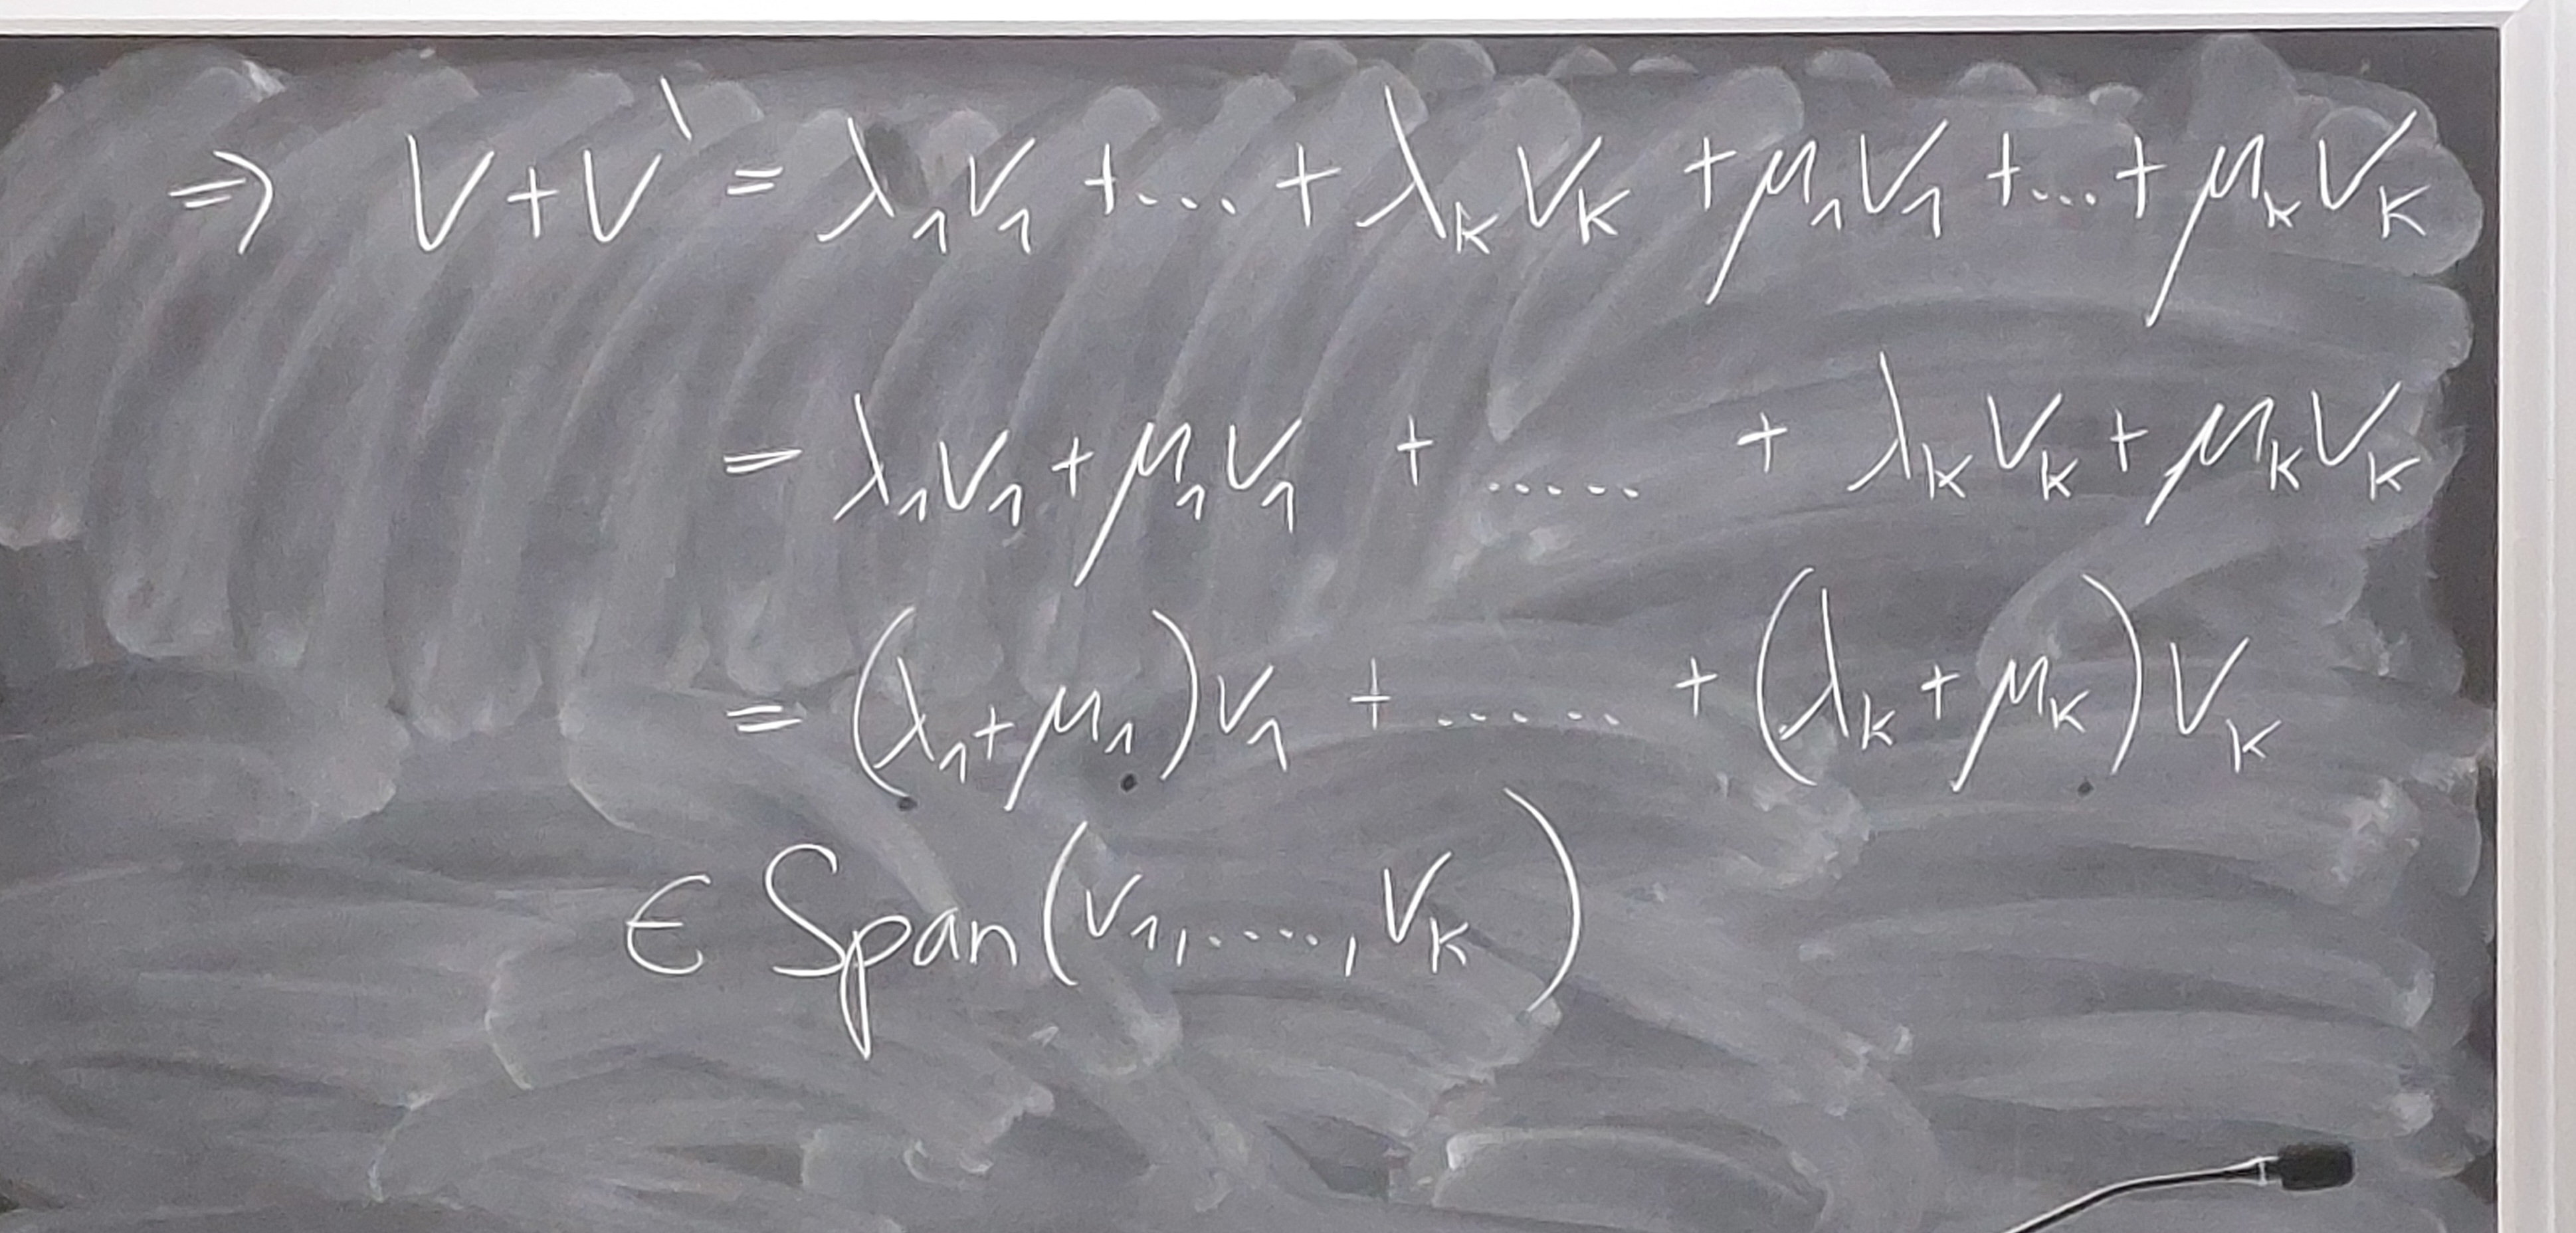 ⇒ V + V' = λ₁V₁ + ... + λₖVₖ + μ₁V₁ + ... + μₖVₖ
= λ₁V₁ + μ₁V₁ + ..... + λₖVₖ + μₖVₖ
= (λ₁ + μ₁)V₁ + ...... + (λₖ + μₖ)Vₖ
∈ Span(V₁, ....., Vₖ)